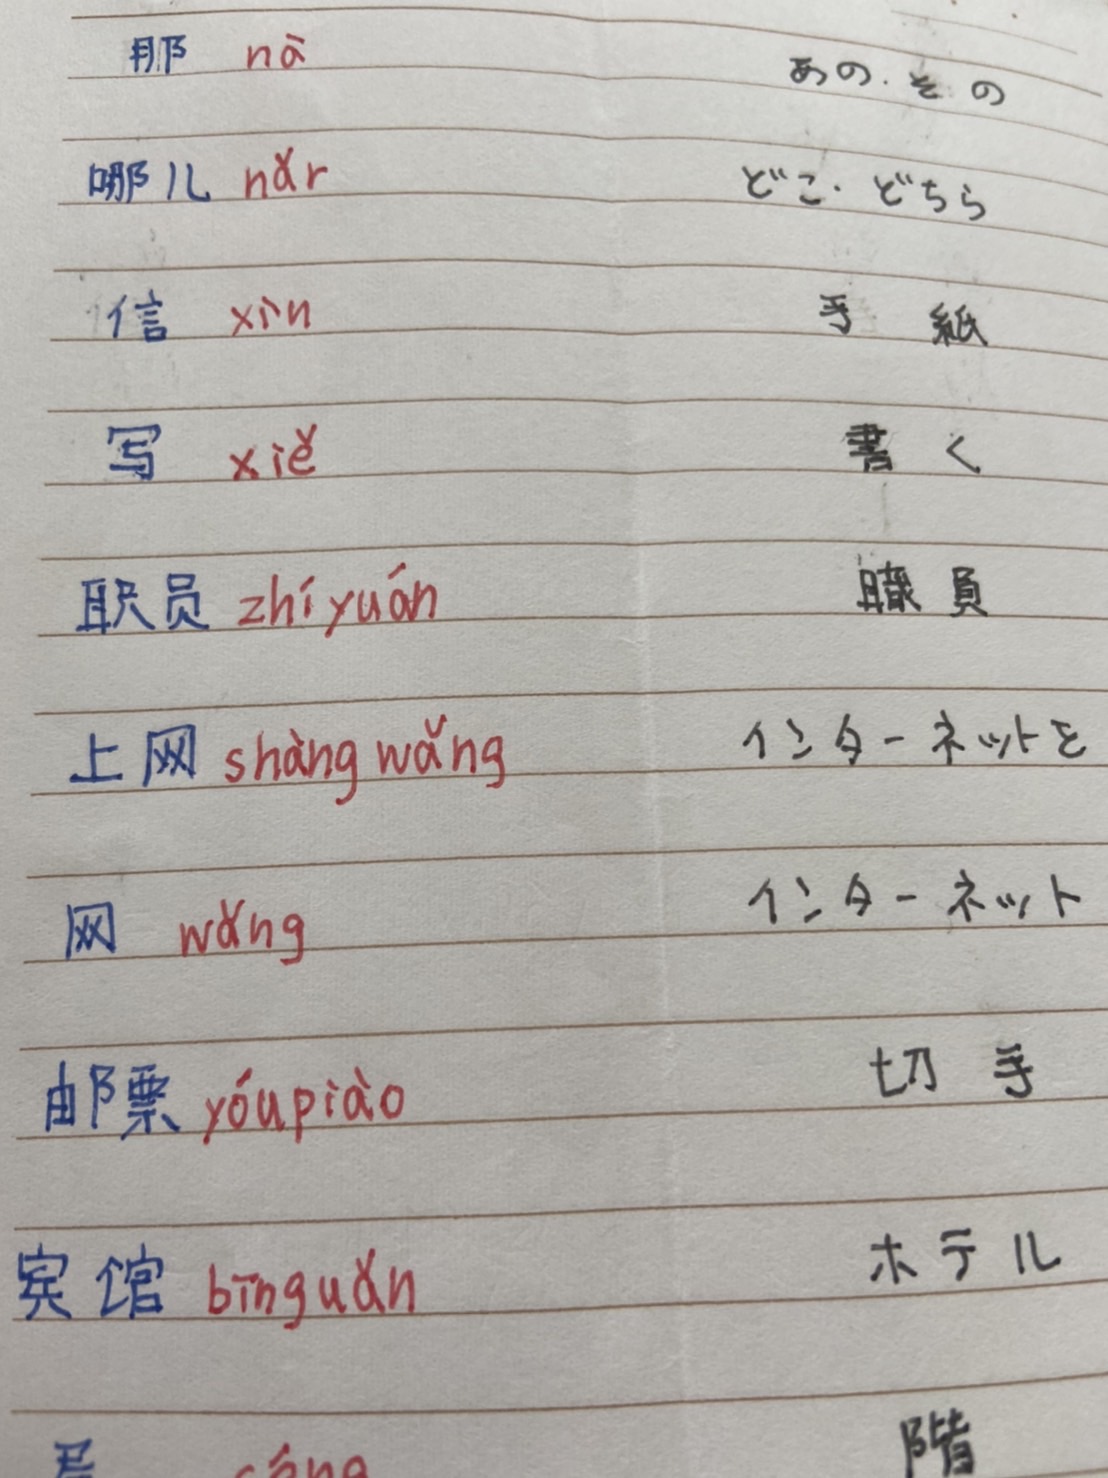 那 nà あの・その
哪儿 nǎr どこ・どちら
信 xìn 手紙
写 xiě 書く
职员 zhíyuán 職員
上网 shàng wǎng インターネットを
网 wǎng インターネット
邮票 yóupiào 切手
宾馆 bīnguǎn ホテル
céng 階